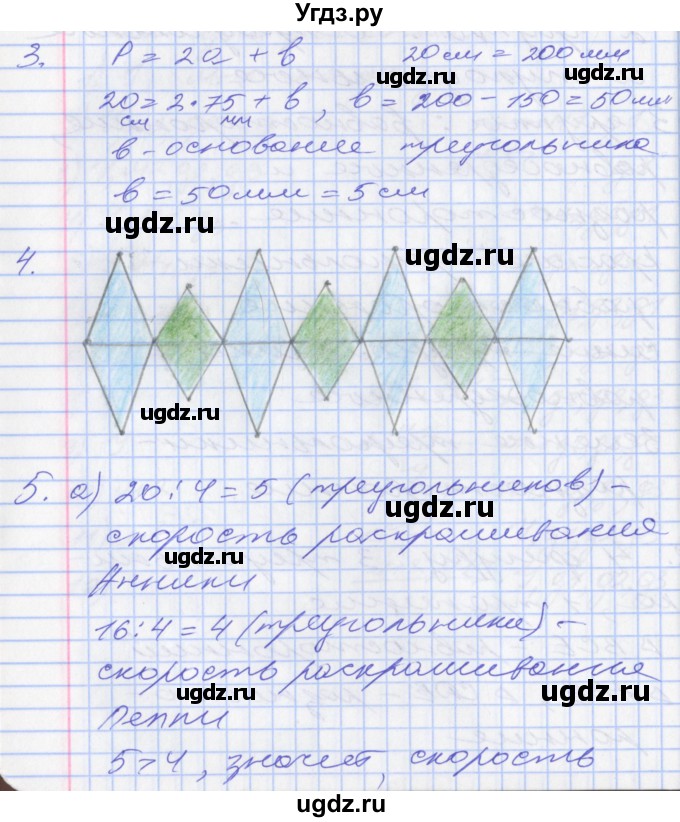 Угдз.ру
3. P = 2a + b 20 см = 200 мм
ugdz.ru ugdz.ru
20 = 2·75 + b, b = 200 - 150 = 50 мм
см мм
b - основание треугольника
b = 50 мм = 5 см
ugdz.ru
ugdz.ru
4.
ugdz.ru
5. а) 20 : 4 = 5 (треугольников) -
ugdz.ru
скорость раскрашивания
ugdz.ru
Анники
16 : 4 = 4 (треугольника) -
скорость раскрашивания
ugdz.ru ugdz.ru
Пеппи
5 > 4, значит, скорость
ugdz.ru
ugdz.ru